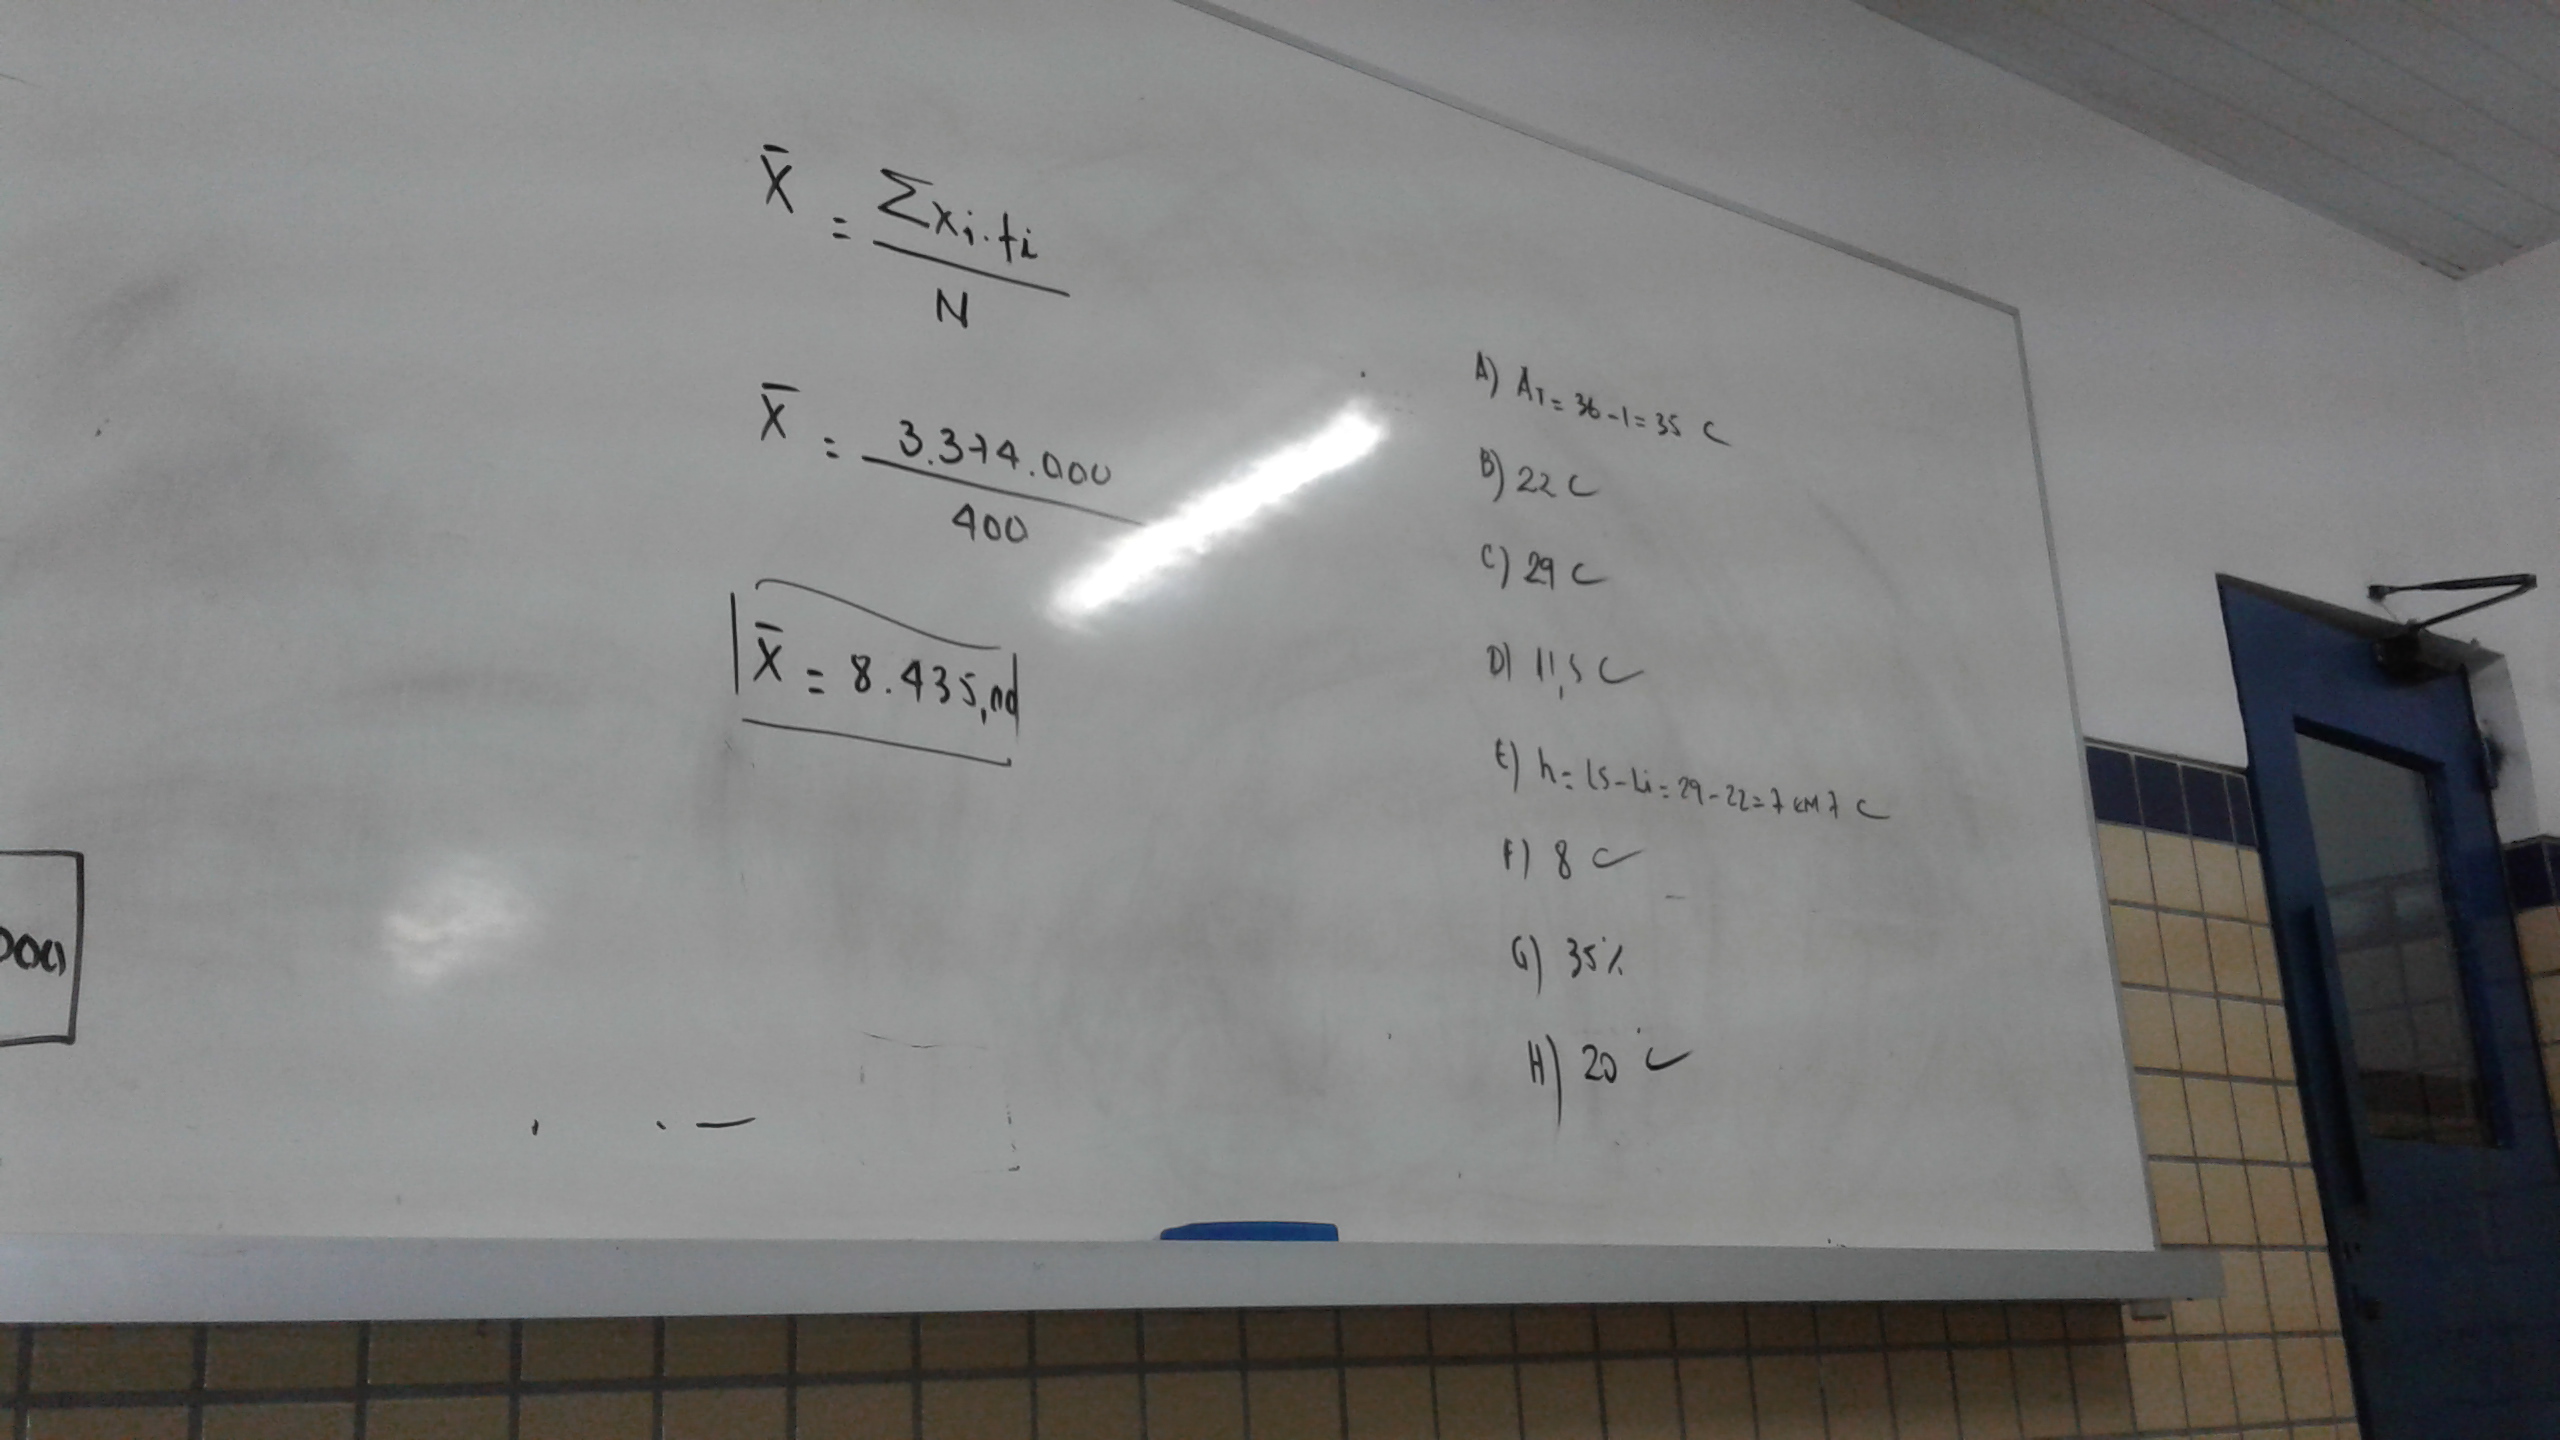 X̄ = Σxi.fi
N
X̄ = 3.374.000
400
X̄ = 8.435,00
A) AT = 36-1 = 35 C
B) 22 C
C) 29 C
D) 11,5 C
E) h = LS-Li = 29-22 = 7 em 7 C
F) 8 C
G) 35%
H) 20 C
000